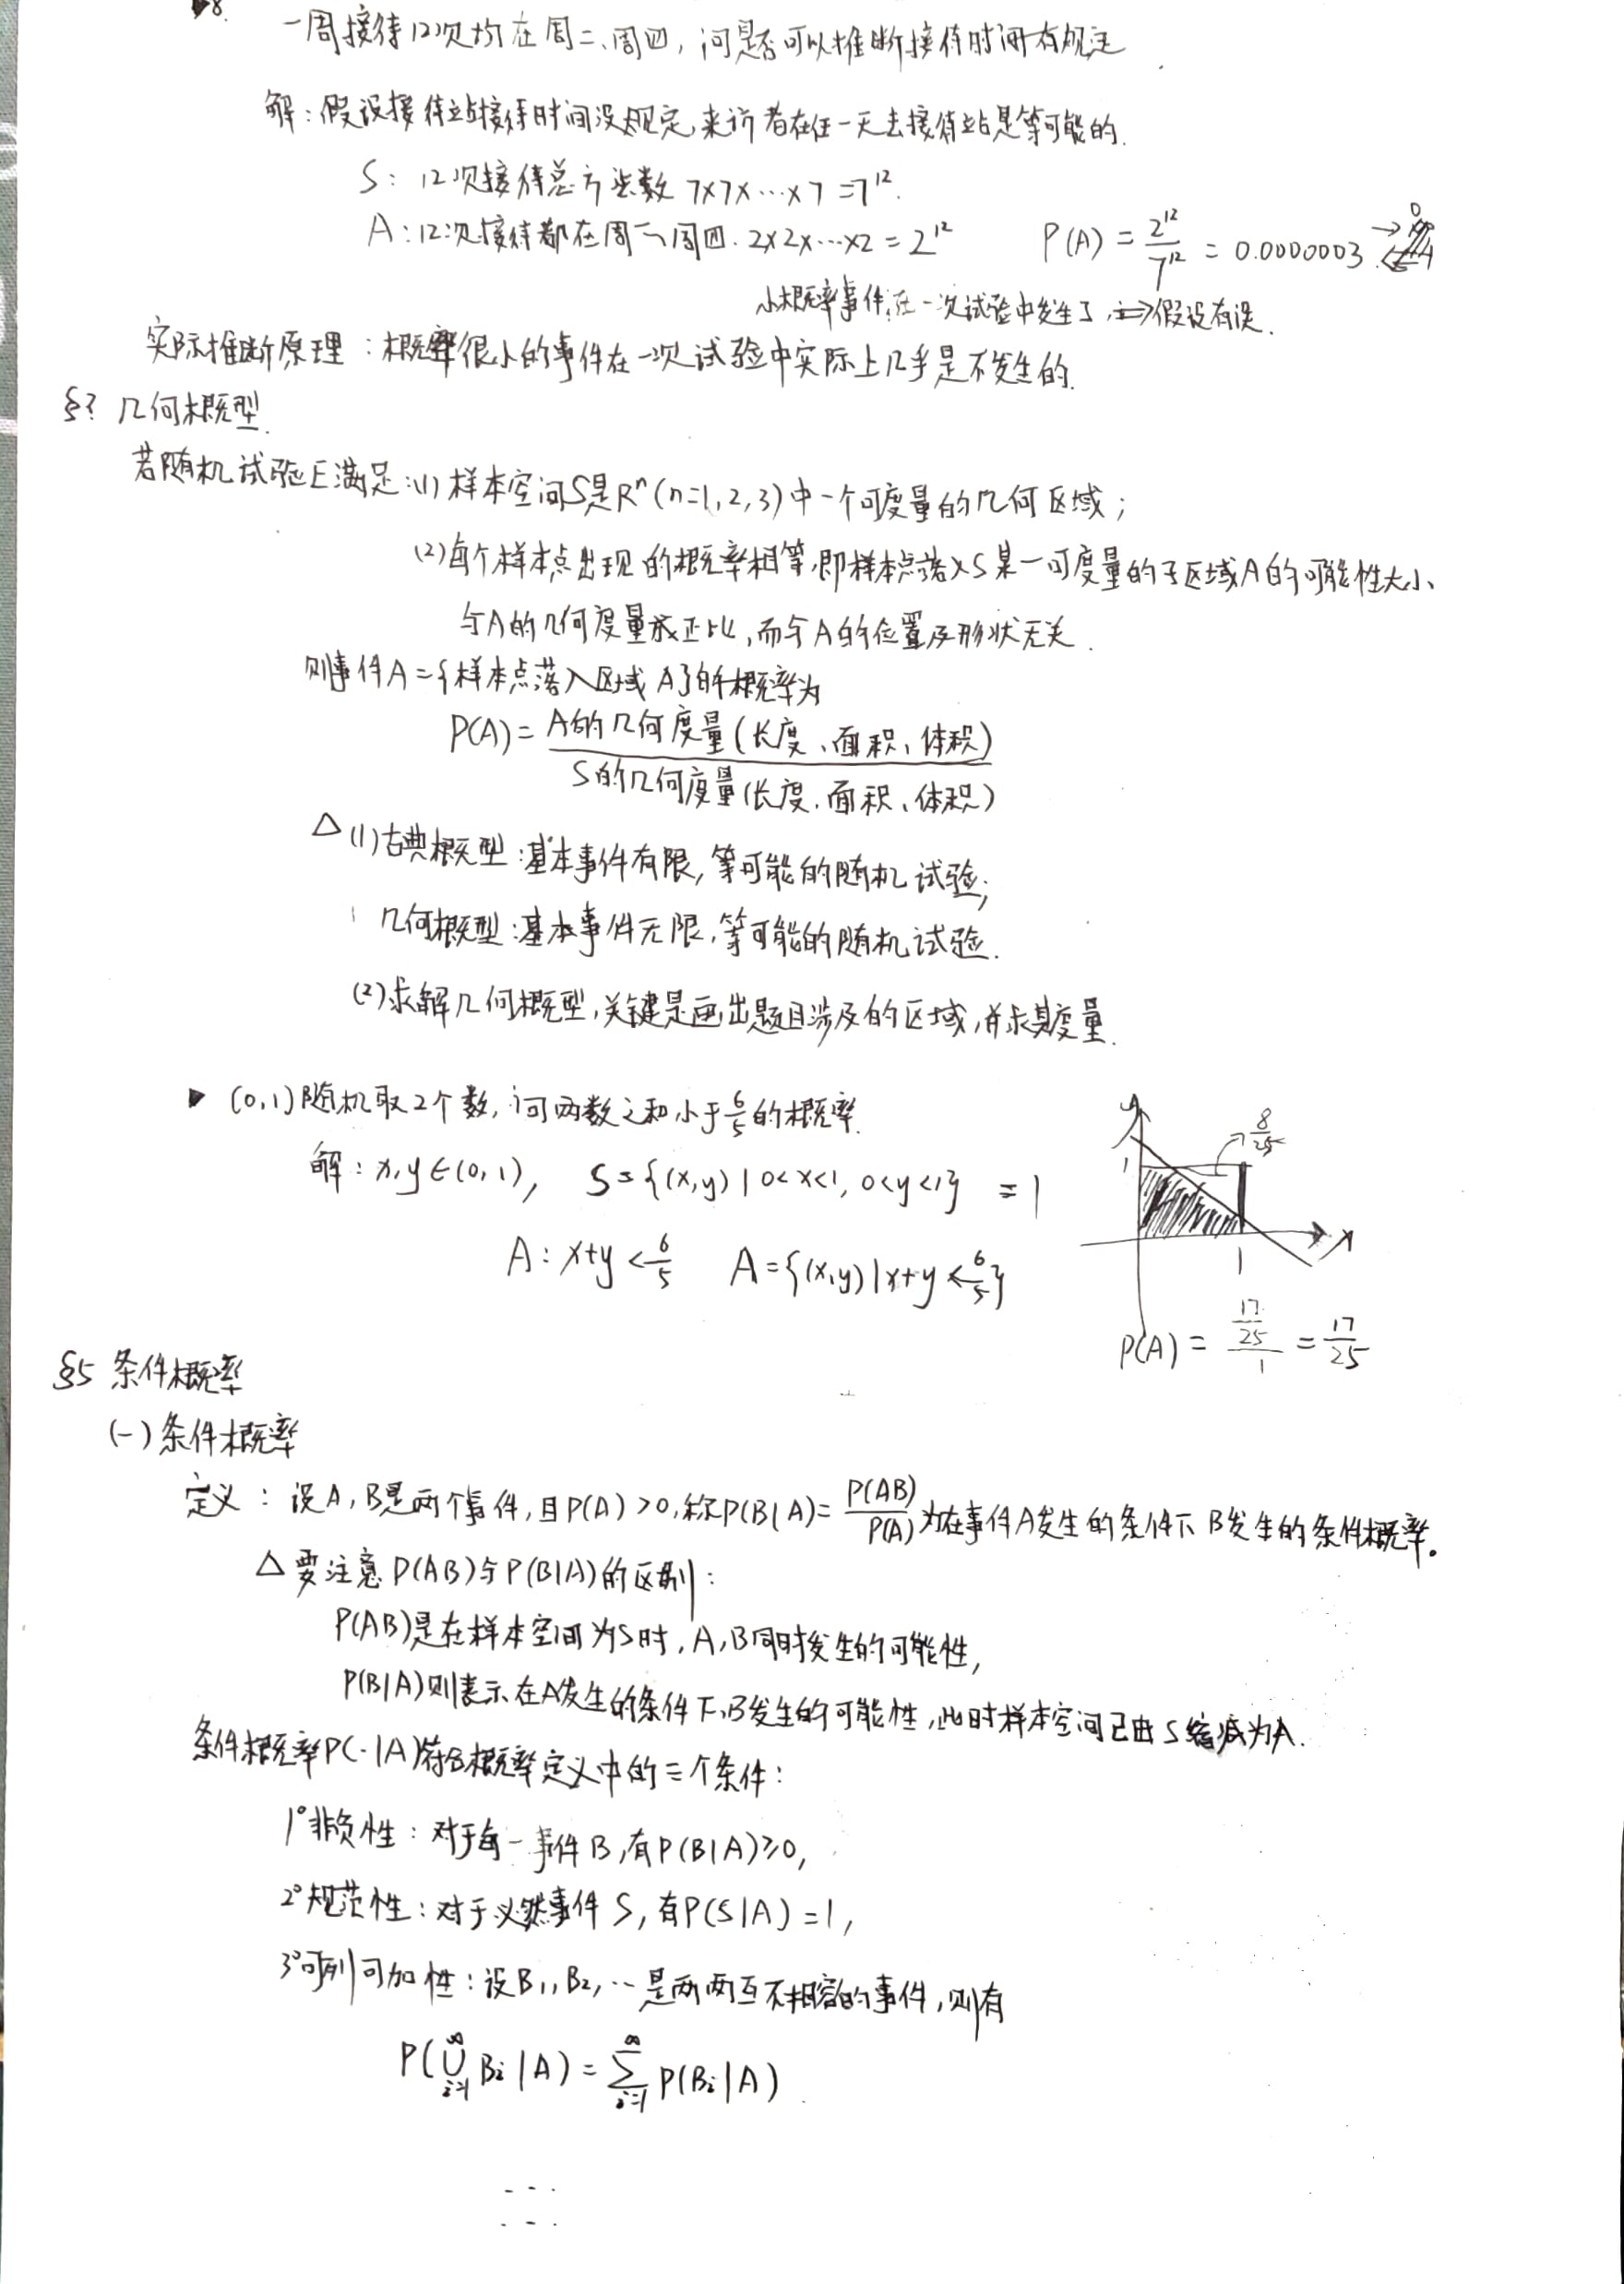 8.
一周接待12次均在周二、周四,问是否可以推断接待时间有规定.
解:假设接待站接待时间没规定,来访者在任一天去接待站是等可能的.
S: 12次接待总方法数 7×7×…×7=7¹².
A:12次接待都在周二、周四. 2×2×…×2=2¹² P(A)=2¹²/7¹²=0.0000003 →0
小概率事件,在一次试验中发生了,⇒假设有误.
实际推断原理:概率很小的事件在一次试验中实际上几乎是不发生的.
§? 几何概型.
若随机试验E满足:(1)样本空间S是Rⁿ(n=1,2,3)中一个可度量的几何区域;
(2)每个样本点出现的概率相等,即样本点落入S某一可度量的子区域A的可能性大小
与A的几何度量成正比,而与A的位置及形状无关.
则事件A={样本点落入区域A}的概率为
P(A)=A的几何度量(长度、面积、体积)
S的几何度量(长度、面积、体积)
△(1)古典概型:基本事件有限,等可能的随机试验;
几何概型:基本事件无限,等可能的随机试验.
(2)求解几何概型,关键是画出题目涉及的区域,并求其度量.
▶ (0,1)随机取2个数,问两数之和小于6/5的概率.
解:x,y∈(0,1), S={(x,y)|0<x<1, 0<y<1} =1
A:x+y<6/5 A={(x,y)|x+y<6/5}
y
1
8/25
x
1
P(A)=(17/25)/1=17/25
§5 条件概率
(一)条件概率
定义:设A,B是两个事件,且P(A)>0,称P(B|A)=P(AB)/P(A)为在事件A发生的条件下B发生的条件概率。
△要注意P(AB)与P(B|A)的区别:
P(AB)是在样本空间为S时,A,B同时发生的可能性,
P(B|A)则表示在A发生的条件下,B发生的可能性,此时样本空间已由S缩减为A.
条件概率P(·|A)符合概率定义中的三个条件:
1°非负性:对于每一事件B,有P(B|A)≥0,
2°规范性:对于必然事件S,有P(S|A)=1,
3°可列可加性:设B₁,B₂,…是两两互不相容的事件,则有
P(⋃_{i=1}^{∞} Bᵢ|A)=∑_{i=1}^{∞} P(Bᵢ|A)